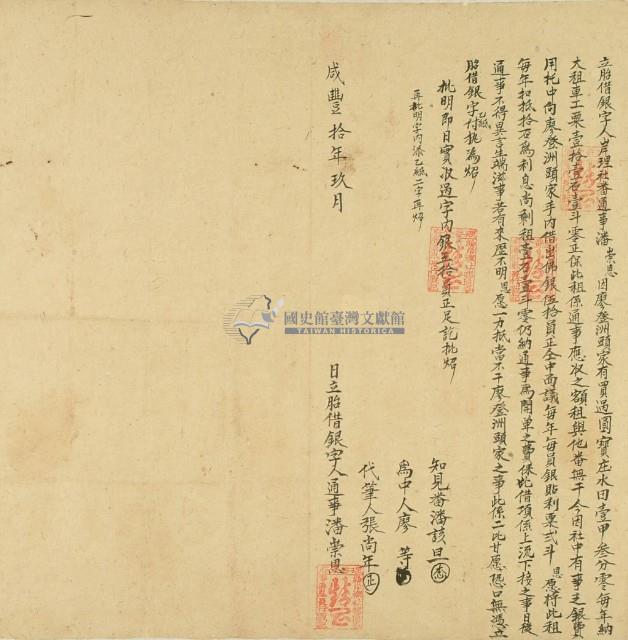 立胎借銀字人岸理社番通事潘崇恩因廖登洲頭家有買過圓寶庄水田壹甲叁分零每年納
大租車工粟壹拾壹石壹斗零正保此租係通事應收之額租與他番無干今因社中有事乏銀費
用托中向廖登洲頭家手內借出佛銀伍拾員正仝中面議每年每員銀貼利粟弍斗恩愿將此租
每年扣抵拾石為利息尚剩租壹石壹斗零仍納通事為開單之費保此借項係上流下接之事日後
通事不得異言生端滋事若有來歷不明恩愿一力抵當不干廖登洲頭家之事此係二比甘愿恐口無憑立
胎借銀字乙紙付執為炤
批明即日實收過字內銀五拾員正足訖批炤
再批明字內添乙紙二字再炤
知見番潘該旦
為中人廖等
代筆人張尚年
咸豐拾年玖月 日立胎借銀字人通事潘崇恩
國史館臺灣文獻館
TAIWAN HISTORICA